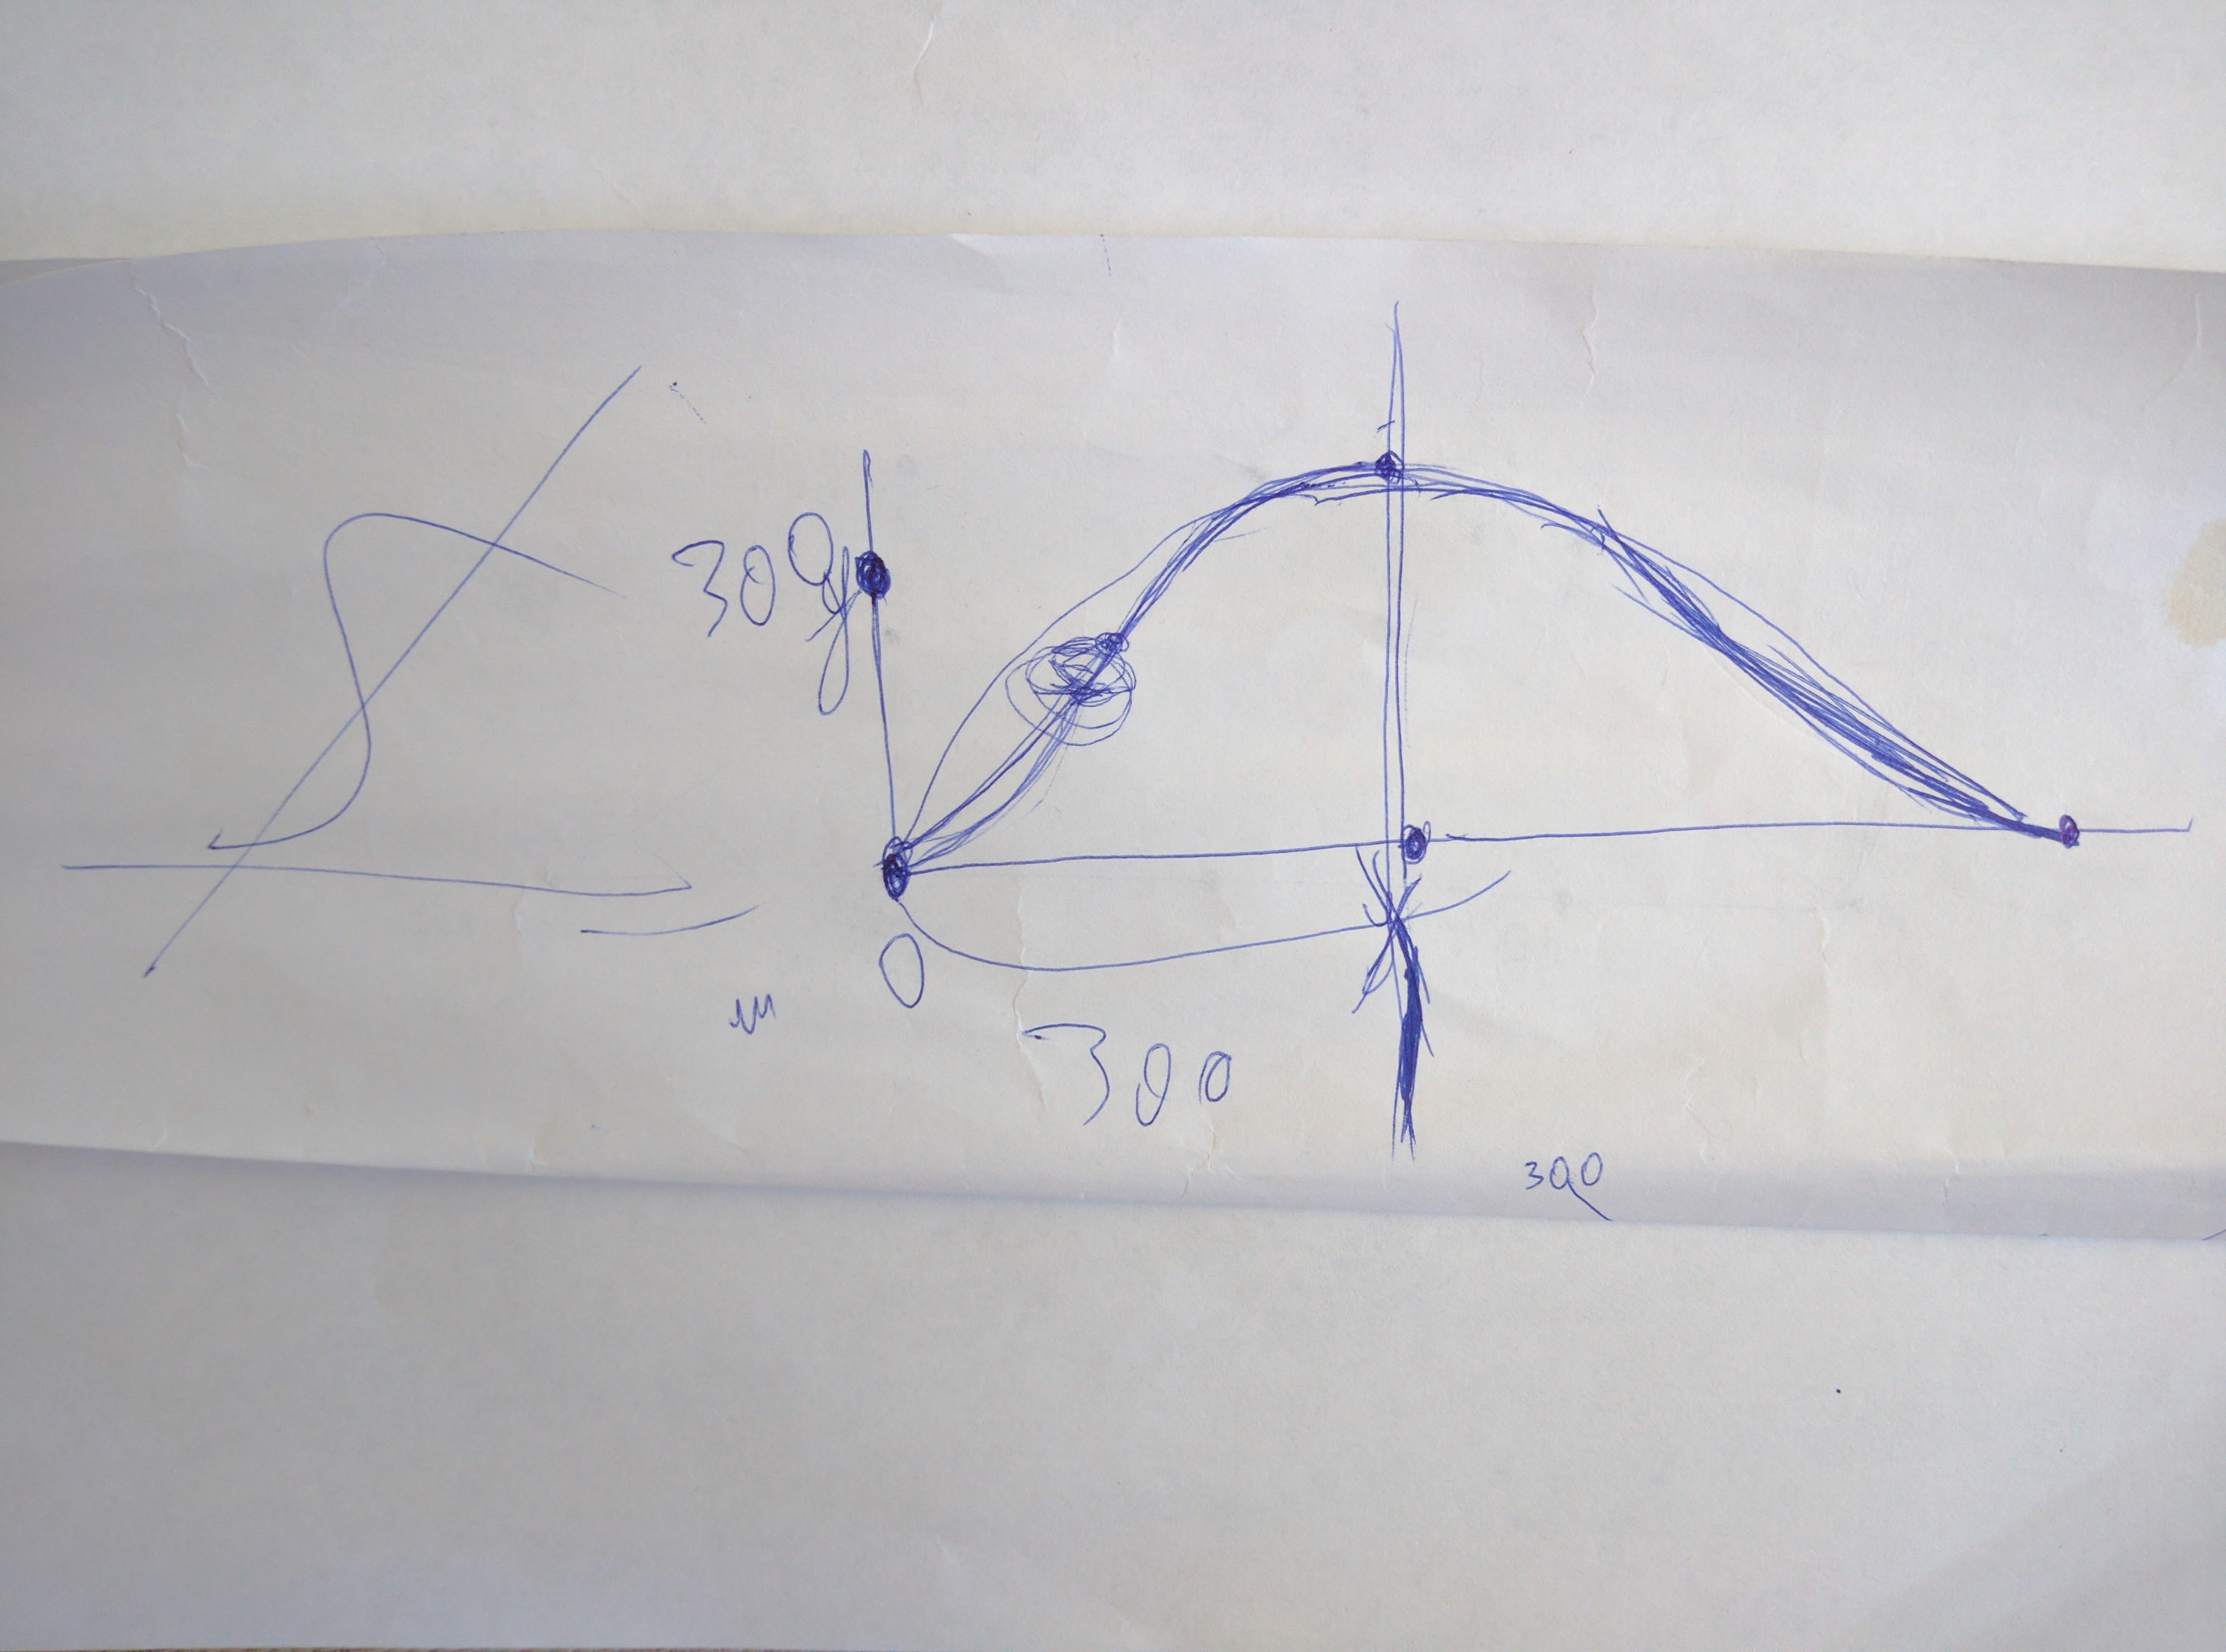 300y
0
300
300